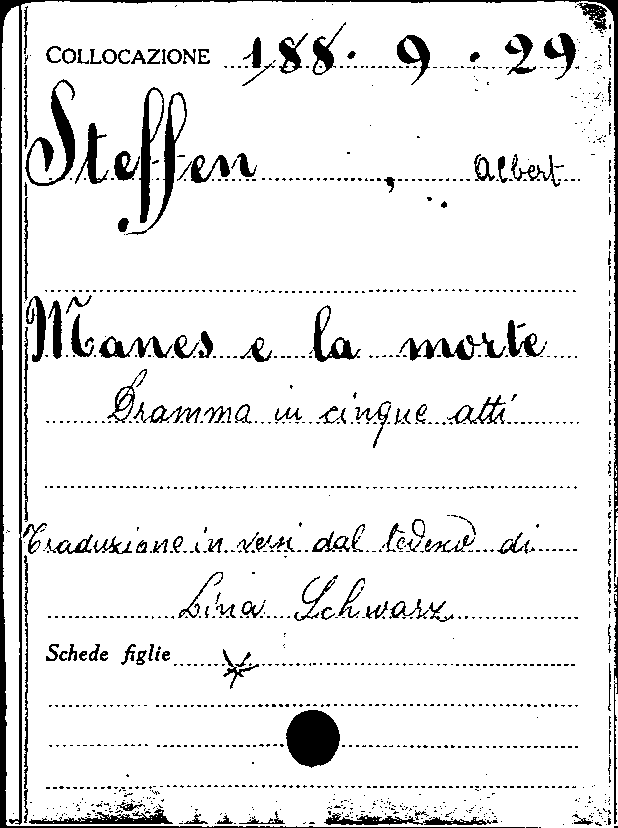 COLLOCAZIONE 188. 9. 29
Steffen, Albert
Manes e la morte
Dramma in cinque atti
Traduzione in versi dal tedesco di
Lina Schwarz
Schede figlie